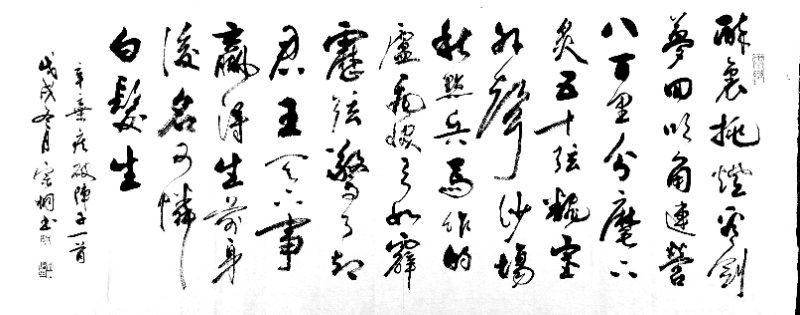 醉裏挑燈看劍
夢回吹角連營
八百里分麾下
炙五十弦翻塞
外聲沙場
秋點兵馬作的
盧飛快弓如霹
靂弦驚了却
君王天下事
贏得生前身
後名可憐
白髮生
辛棄疾破陣子一首
戊戌冬月 书